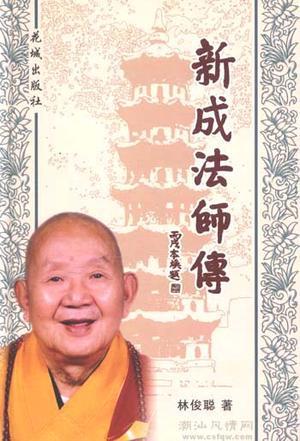 花城出版社
新成法師傳
丙戌本煥題
林俊聪 著
潮汕风情网
www.csfqw.com